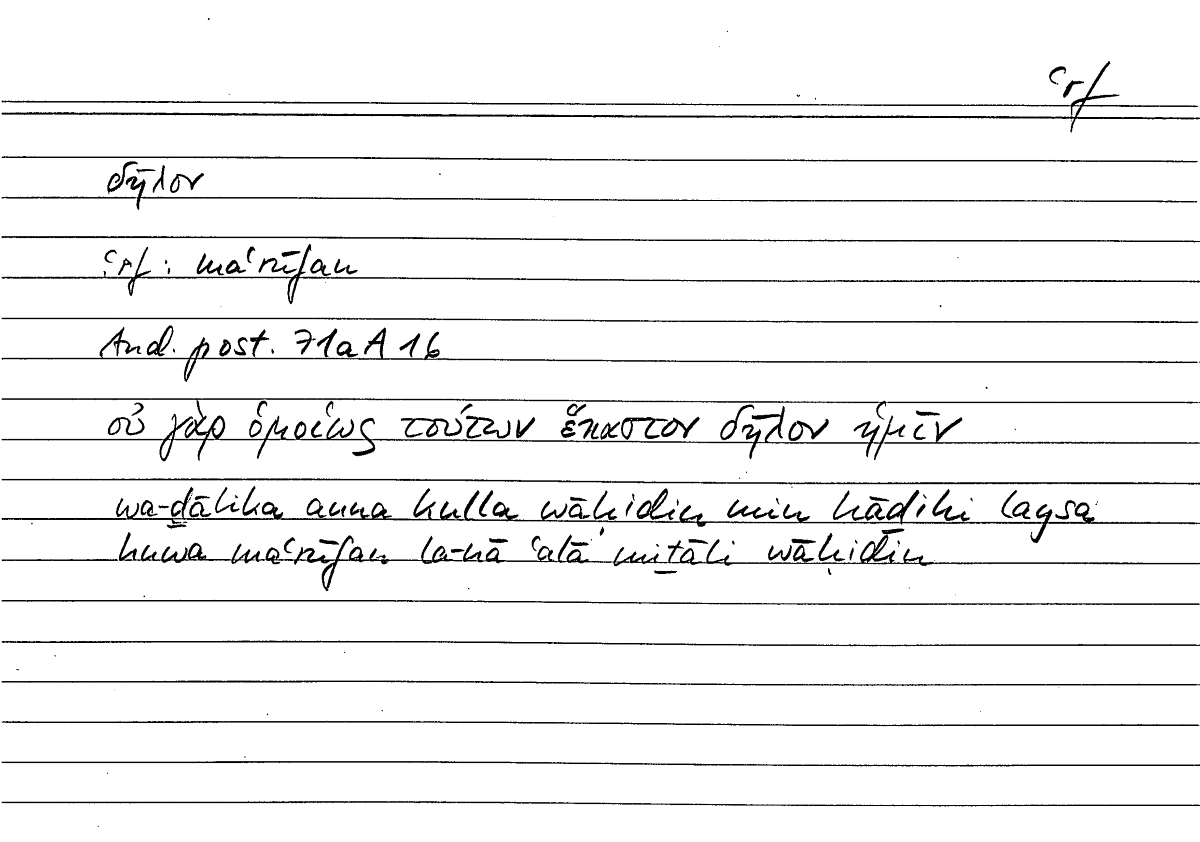 ʿrf
δῆλον
ʿrf : maʿrūfan
Anal. post. 71a A 16
οὐ γὰρ ὁμοίως τούτων ἕκαστον δῆλον ἡμῖν
wa-ḏālika anna kulla wāḥidin min hāḏihi laysa
huwa maʿrūfan la-nā ʿalā miṯāli wāḥidin